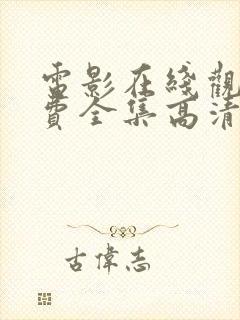 電影在綫觀
費全集高清
古偉志